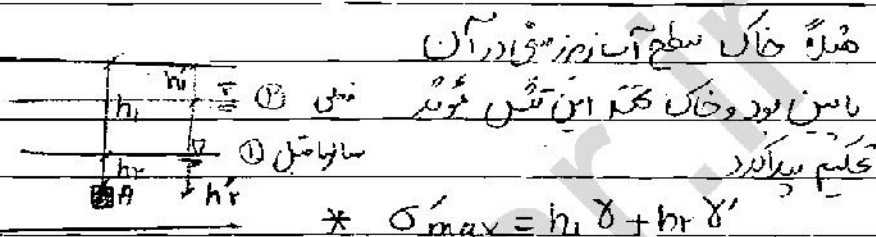 مثلاً خاک سطح آب زیرزمینی در آن
پایین بود و خاک تحت این تنش مؤثر
تحکیم پیدا کرد
h₁ h₁' ② فعلی
سالها قبل ①
h₂ A h₂'
* σ'max = h₁ γ + h₂ γ'